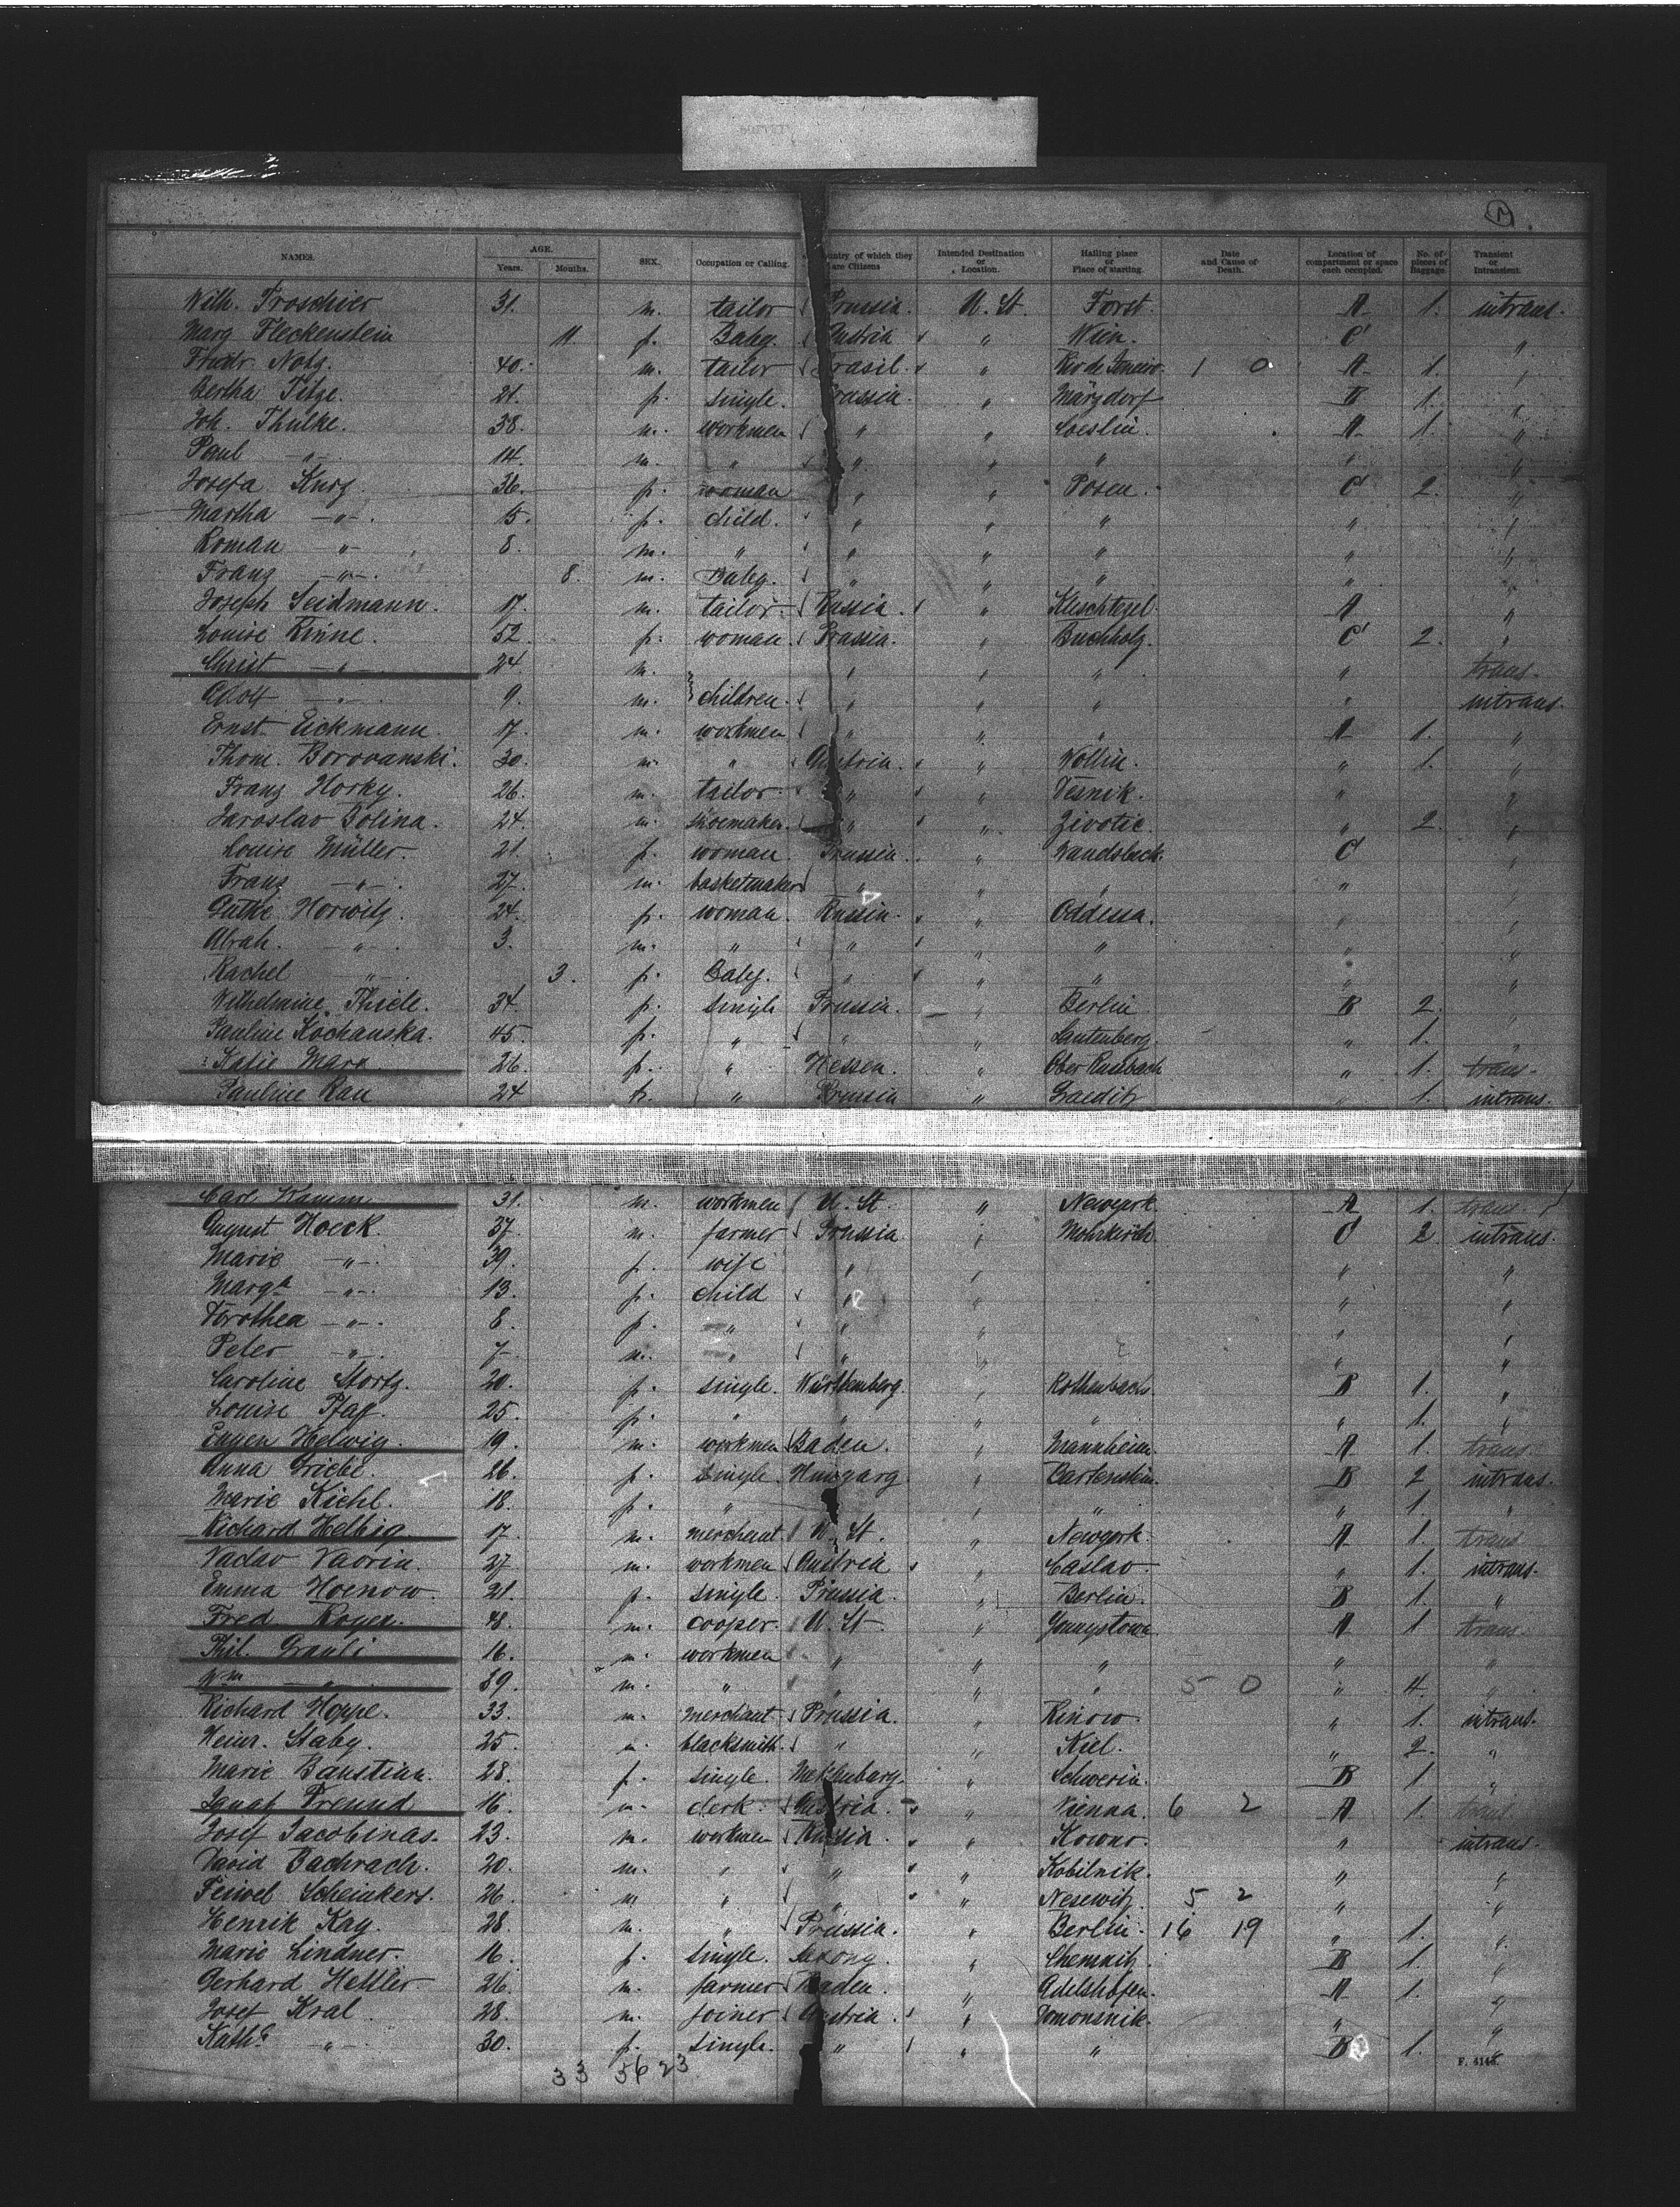 NAMES. AGE. Years. Months. SEX. Occupation or Calling. Country of which they are Citizens Intended Destination or Location. Hailing place or Place of starting. Date and Cause of Death. Location of compartment or space each occupied. No. of pieces of Baggage. Transient or Intransient.
Wilh. Troschier 31. m. tailor Prussia. U. St. Forst. A 1. intrans.
Marg Fleckenstein 11. f. Baby. Austria " Wien. C "
Friedr. Notz. 40. m. tailor Brasil. " Rio de Janeiro. 1 0 A 1. "
Bertha Titze. 21. f. single. Prussia. " Märzdorf B 1. "
Joh. Thulke. 38. m. workmen " " Coeslin. A 1. "
Paul -"- 14. m. " " " " " "
Josefa Kurz. 36. f. woman " " Posen. C 2. "
Martha -"- 15. f. child. " " " " "
Roman -"- 8. m. " " " " " "
Franz -"- 8. m. Baby. " " " " "
Joseph Seidmann. 17. m. tailor Russia. " A "
Louise Rinne. 52. f. woman. Prussia. " Buchholz. C 2. "
Christ -"- 24. m. " " " " trans.
Adolf -"- 9. m. children. " " " " intrans.
Ernst Eickmann. 17. m. workmen " " " A 1. "
Thom. Borovanski. 30. m. " Austria. " Wollin. " 1. "
Franz Horky. 26. m. tailor " " Tesnik. " "
Jaroslav Bolina. 24. m. shoemaker. " " Zivotic. " 2. "
Louise Müller. 21. f. woman. Prussia. " Wandsbeck. C "
Franz -"- 27. m. basketmaker " " " " "
Gutke Horwitz. 24. f. woman. Russia. " Oddessa. " "
Abrah. -"- 3. m. " " " " " "
Rachel -"- 3. f. Baby. " " " " "
Wilhelmine Thiele. 34. f. single Prussia. " Berlin B 2. "
Pauline Kochanska. 45. f. " " " Lautenberg. " 1. "
Katie Marx 26. f. " Hessen. " " 1. trans.
Pauline Rau 24 f. " Prussia " Graeditz " 1. intrans.
Carl Kamm 31. m. workmen U. St. " Newyork. A 1. trans.
August Hoeck. 37. m. farmer Prussia " Mohrkirch. C 2 intrans.
Marie -"- 39. f. wife " " " "
Marga -"- 13. f. child " " " "
Dorothea -"- 8. f. " " " " "
Peter -"- 7. m. " " " " "
Caroline Stortz. 20. f. single. Württemberg. " Rothenbach B 1. "
Louise Pfaf. 25. f. " " " " " 1. "
Eugen Helwig. 19. m. workmen Baden. " Mannheim. A 1. trans.
Anna Griebe. 26. f. single. Hungarg. " Bartenstein. B 2 intrans.
Marie Kiehl. 18. f. " " " " 1. "
Richard Helbig. 17. m. merchant U. St. " Newyork. A 1. trans
Vaclav Vavrin. 27 m. workmen Austria " Caslav. " 1. intrans.
Emma Hoenow. 21. f. single. Prussia. " Berlin. B 1. "
Fred Royer. 48. m. cooper. U. St. " Youngstown A 1 trans.
Phil. Grauli 16. m. workmen " " " " "
Wm -"- 59. m. " " " " 5 0 " 4. "
Richard Hoppe. 33. m. merchant. Prussia. " Rinow. " 1. intrans.
Heinr. Staby. 25. m. blacksmith. " " Kiel. " 2. "
Marie Baustian. 28. f. single. Meklenburg. " Schwerin. B 1. "
Ignatz Freund 16. m. clerk. Austria. " Vienna. 6 2 A 1. trans
Josef Jacobinas. 23. m. workmen Russia. " Kowno. " intrans.
David Bachrach. 20. m. " " Kobilnik. " "
Feiwel Scheinkerl. 26. m " " " Nesewitz. 5 2 " "
Henrik Kay. 28. m. " Prussia. " Berlin. 16 19 " 1. "
Marie Lindner. 16. f. single. Saxony. " Chemnitz. B 1. "
Gerhard Hettler 26. m. farmer Baden. " Adelshofen. A 1. "
Josef Kral 28. m. joiner Austria. " Domousnik. " "
Kath. -"- 30. f. single. " " " B 1. "
33 56 23
F. 4143.